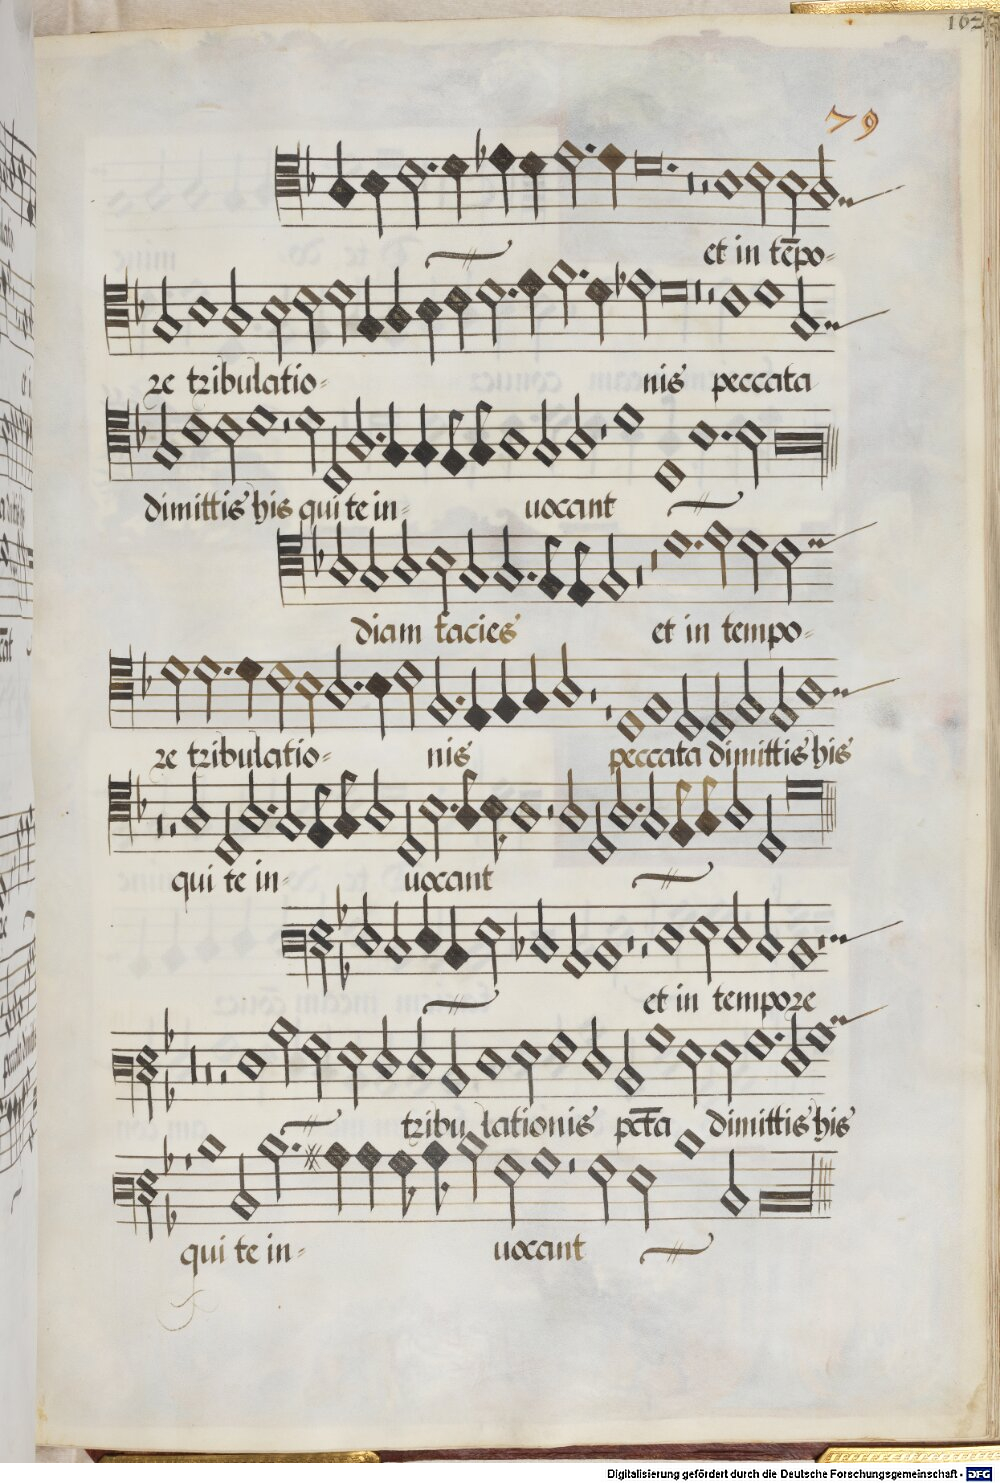 163
79
et in tēpo-
re tribulatio- nis peccata
dimittis his qui te in- uocant
diam facies et in tempo-
re tribulatio- nis peccata dimittis his
qui te in- uocant
et in tempore
tribu lationis pct̄a dimittis his
qui te in- uocant
Digitalisierung gefördert durch die Deutsche Forschungsgemeinschaft - DFG